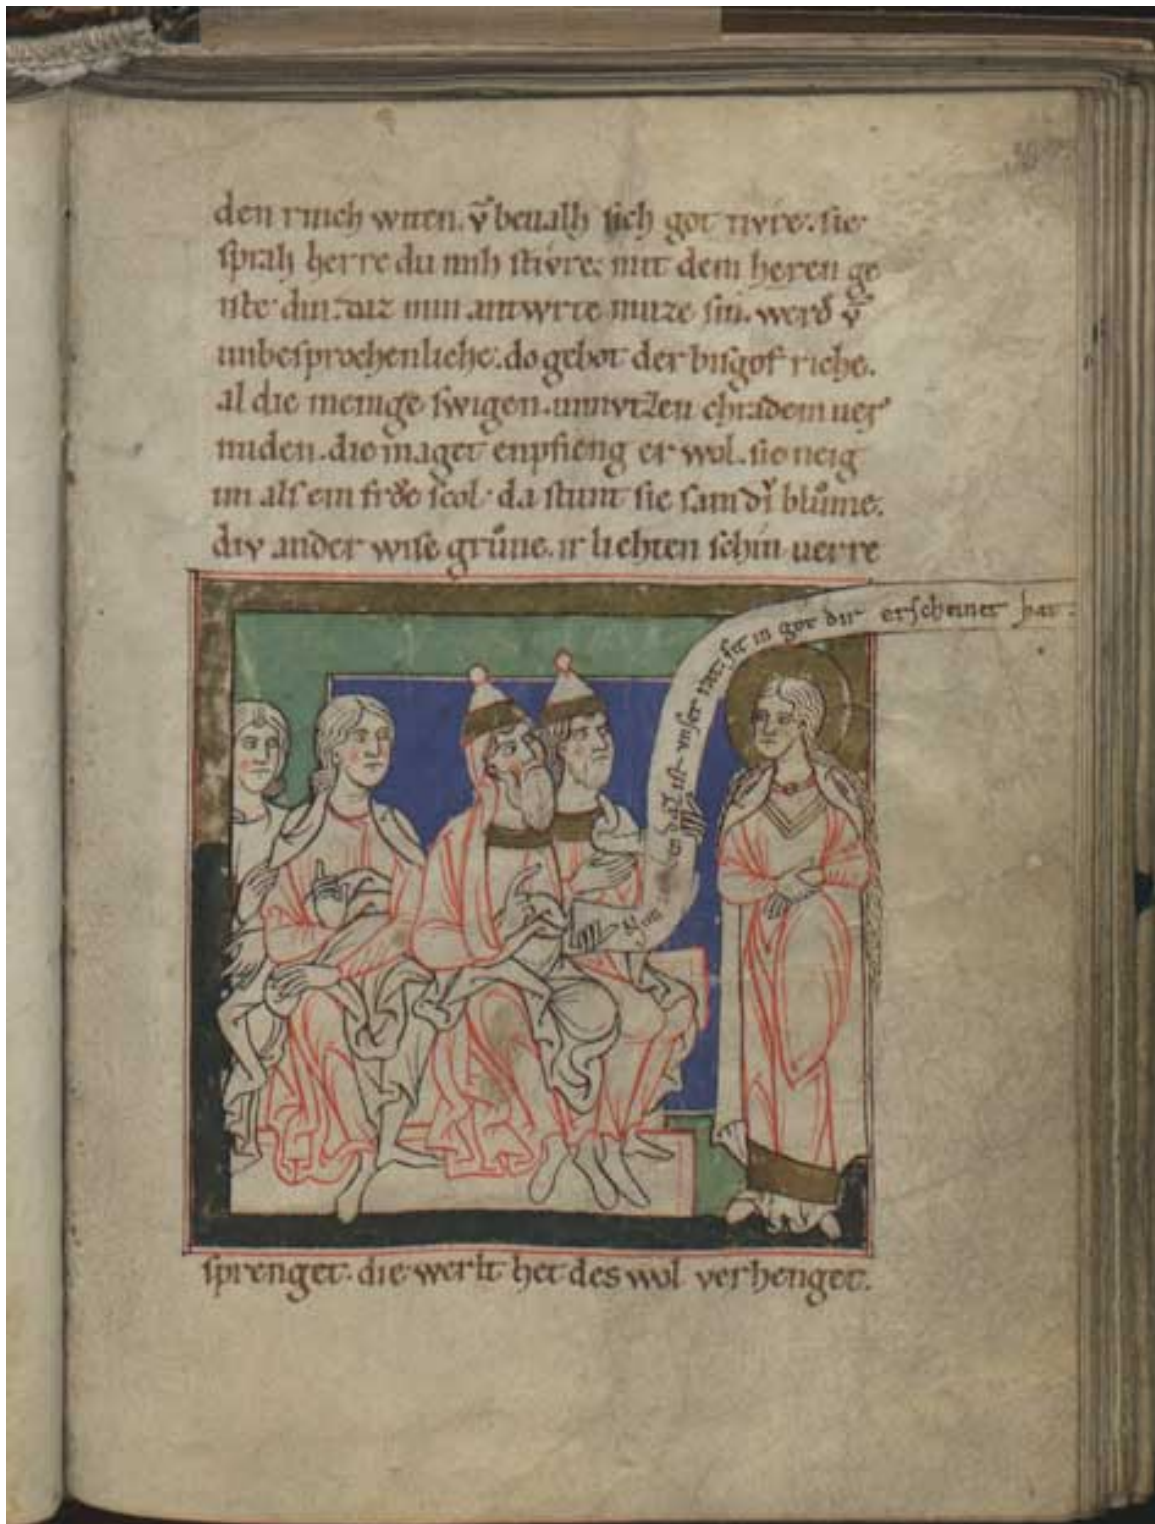 den rinch witen. v̄ beualh sich got tivre. sie
sprah herre du mih stivre. mit dem heren ge
iste din. daz min antwrte muze sin. werd v̄
unbesprochenliche. do gebot der bisgof riche.
al die menige swigen. unnvtzen chradem uer
miden. die maget enpfieng er wol. sie neig
im als ein fro scol. da stunt sie sam div blůme.
div ander wise grůne. ir liehten schin uerre
ist unser rat. sit in got dir erscheinet hat.
sprenget. die werlt het des wol verhenget.